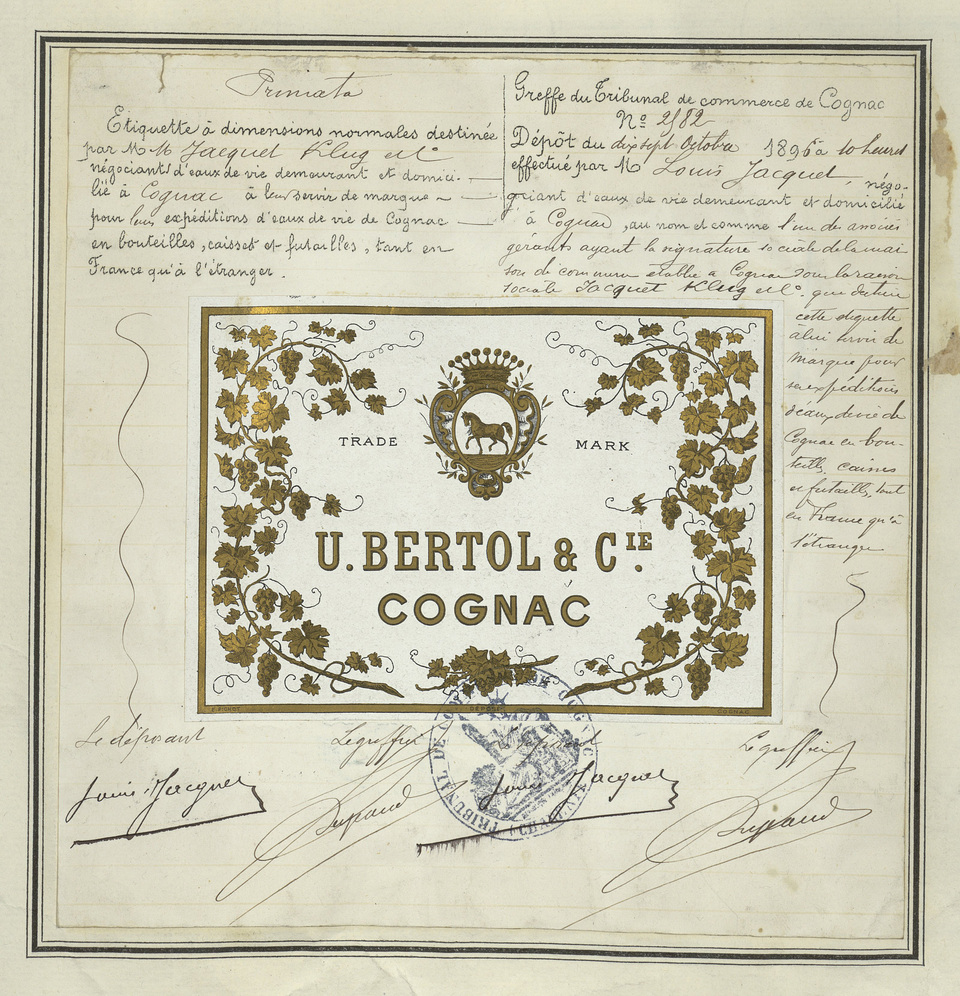 Primata
Etiquette à dimensions normales destinée
par MM Jacquet Klug et Cⁱᵉ
négociants d'eaux de vie demeurant et domici-
lié à Cognac à leur servir de marque
pour leurs expéditions d'eaux de vie de Cognac
en bouteilles, caisses et futailles, tant en
France qu'à l'étranger.
Greffe du Tribunal de commerce de Cognac
Nº 2182
Dépôt du dix sept Octobre 1896 à 10 heures
effectué par M Louis Jacquet, négo-
griant d'eaux de vie demeurant et domicilié
à Cognac, au nom et comme l'un des associés
gérants ayant la signature sociale de la mai-
son de commerce établie à Cognac sous la raison
sociale Jacquet Klug et Cº. que destine
cette étiquette
à lui servir de
marque pour
ses expéditions
d'eaux de vie de
Cognac en bou-
teilles, caisses
et futailles, tant
en France qu'à
l'étranger
TRADE MARK
U. BERTOL & CIE.
COGNAC
DÉPOSÉ
COGNAC
Le déposant Le greffier Le déposant Le greffier
Louis Jacquet Louis Jacquet
TRIBUNAL DE COMMERCE DE COGNAC